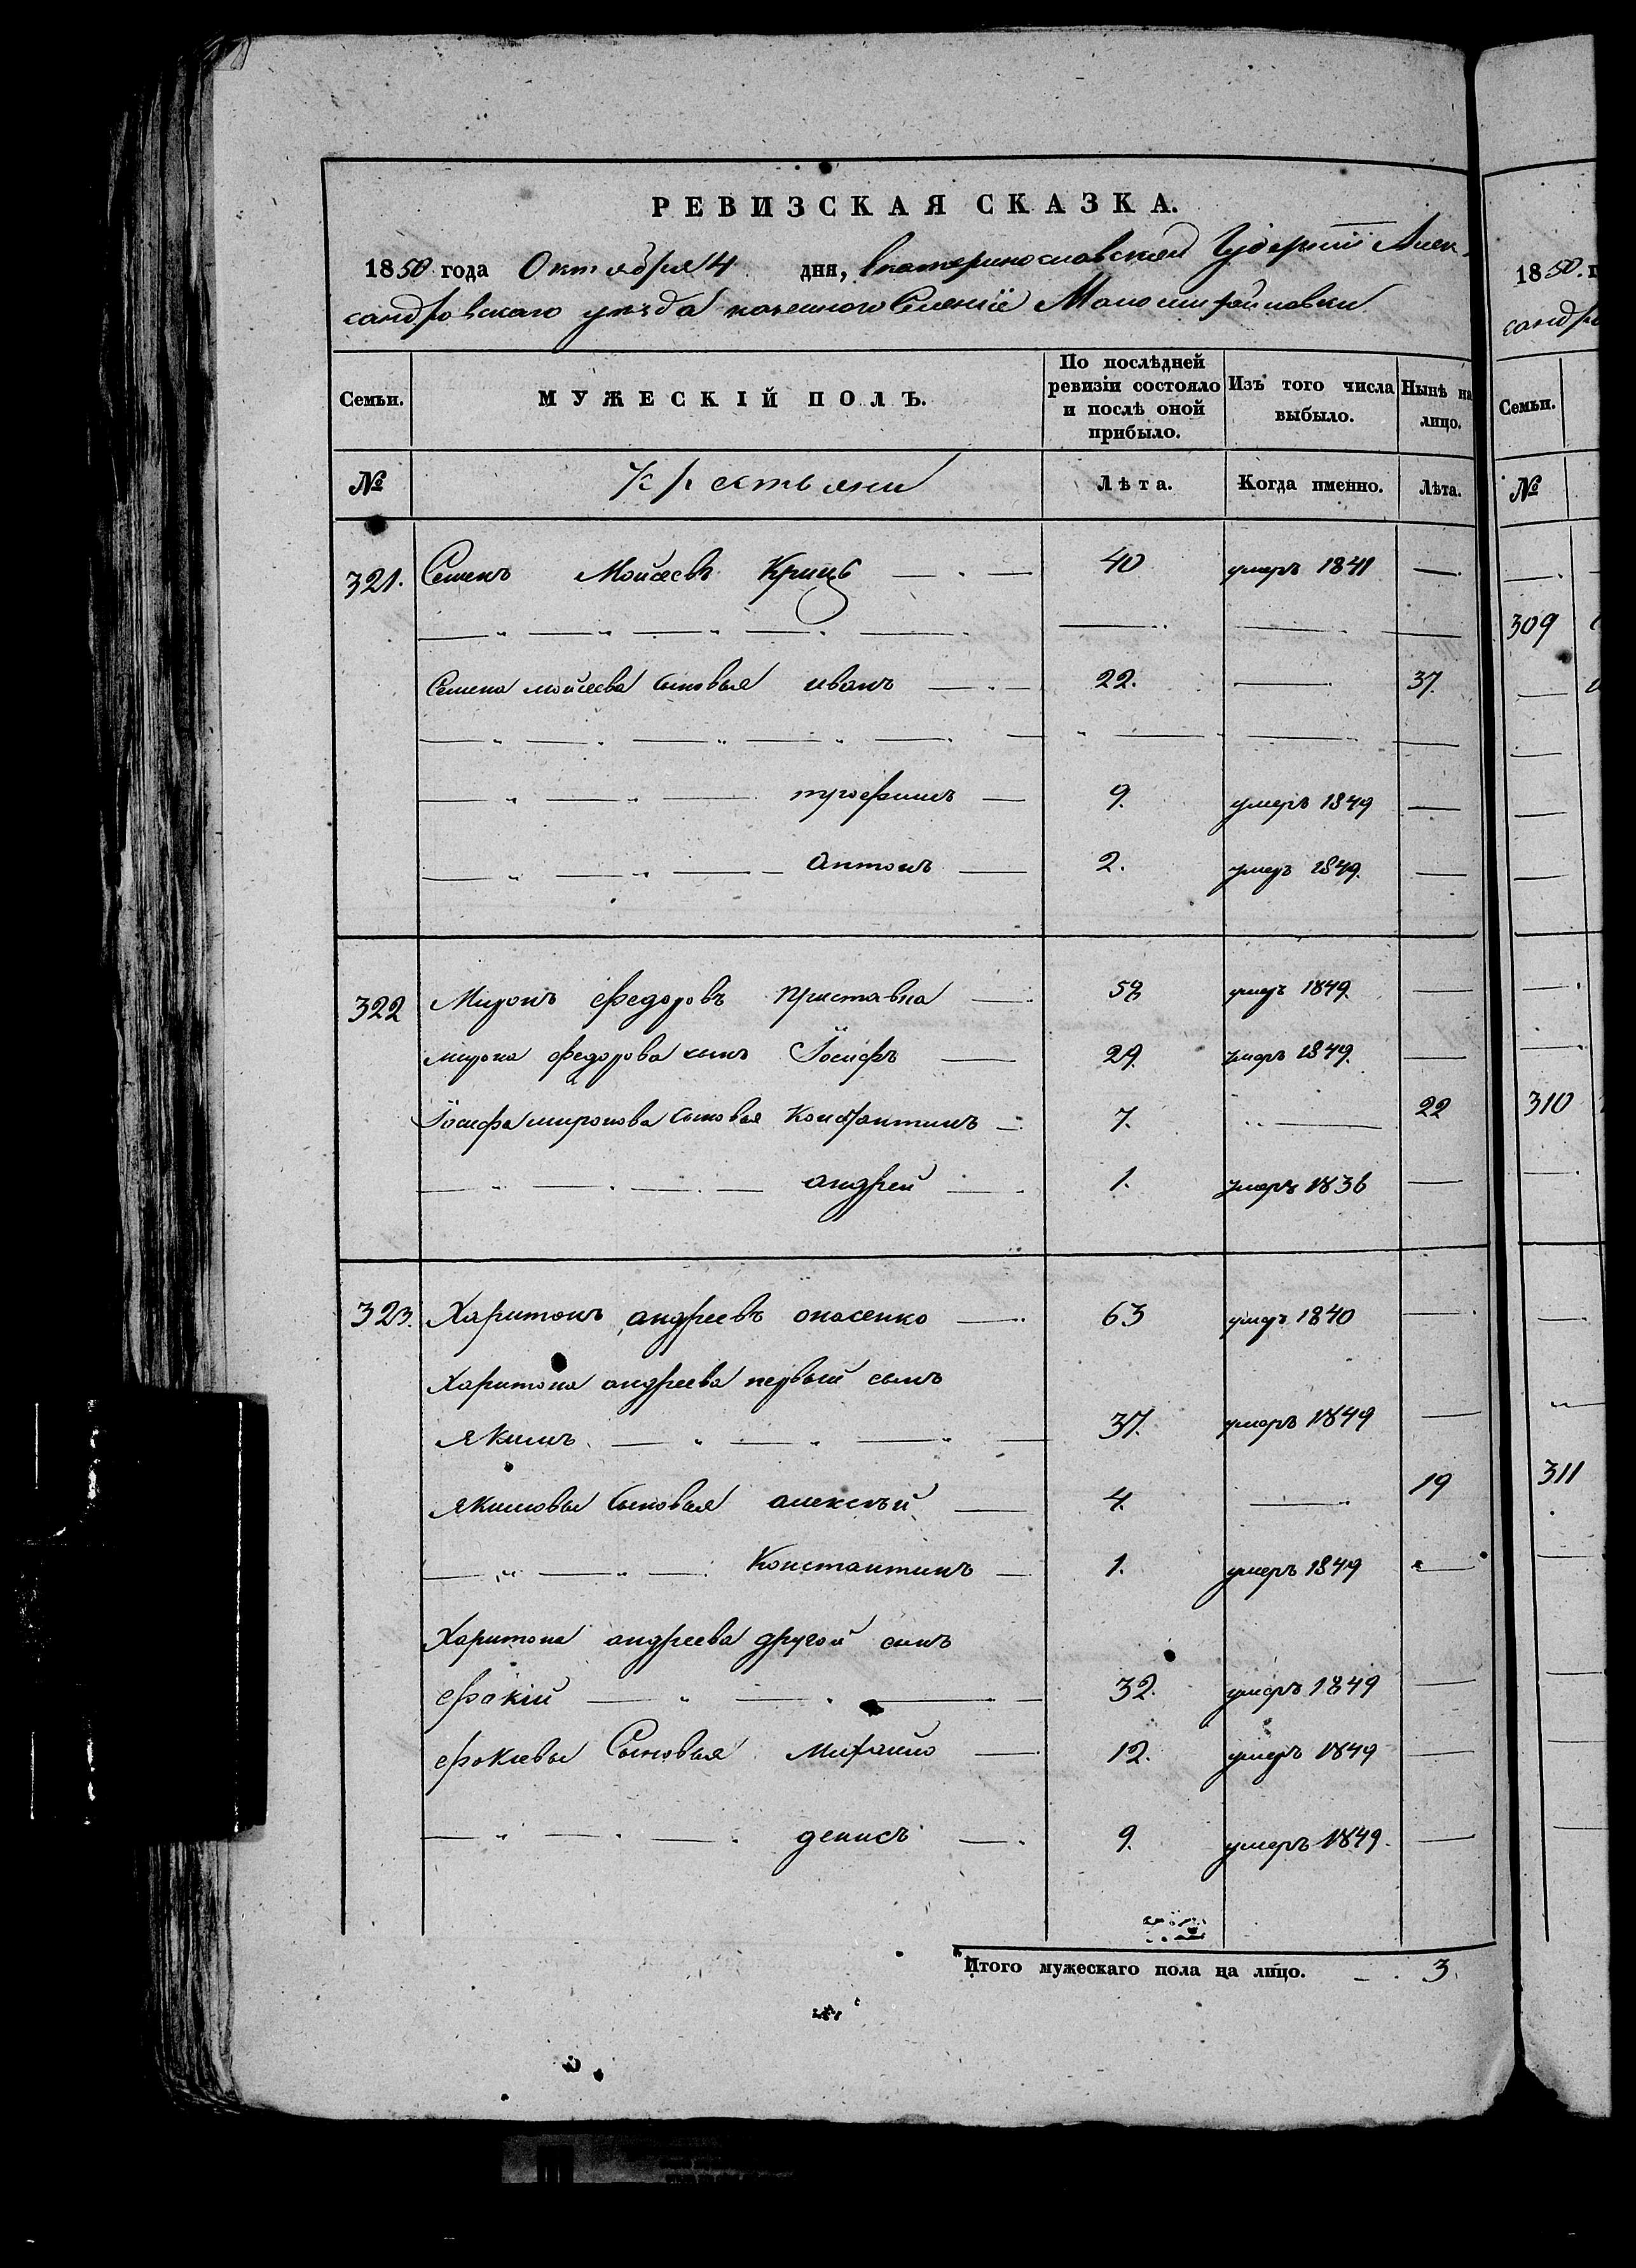 РЕВИЗСКАЯ СКАЗКА.
1850 года Октября 4 дня, Екатеринославской Губернiи Алек-
сандровскаго уезда казенного Селенiе Маломихайловки
Семьи.
МУЖЕСКІЙ ПОЛЪ.
По послѣдней ревизіи состояло и послѣ оной прибыло.
Изъ того числа выбыло.
Нынѣ на лицо.
№ Крестьяни Лѣта. Когда именно. Лѣта.
321. Семенъ Мойсеевъ Крицъ 40 умеръ 1841
Семена мойсеева сыновья иванъ 22. 37.
трофимъ 9. умеръ 1849
Антонъ 2. умеръ 1849.
322 Миронъ федоровъ Приставка умеръ 1849.
мирона федорова сынъ Iосифъ 29. умеръ 1849.
Iосифа миронова сыновья Константинъ 7. 22
андрей 1. умеръ 1836
323. Харитонъ андреевъ опасенко 63 умеръ 1840
Харитона андреева первый сынъ
якимъ 37. умеръ 1849
якимовы сыновья алексѣй 4. 19
Константинъ 1. умеръ 1849
Харитона андреева другой сынъ
фокiй 32. умеръ 1849
фокiевы Сыновья Михайло 12. умеръ 1849
денисъ 9. умеръ 1849.
Итого мужескаго пола на лицо. 3.
1850. г
сандро
Семьи.
№
309
310
311